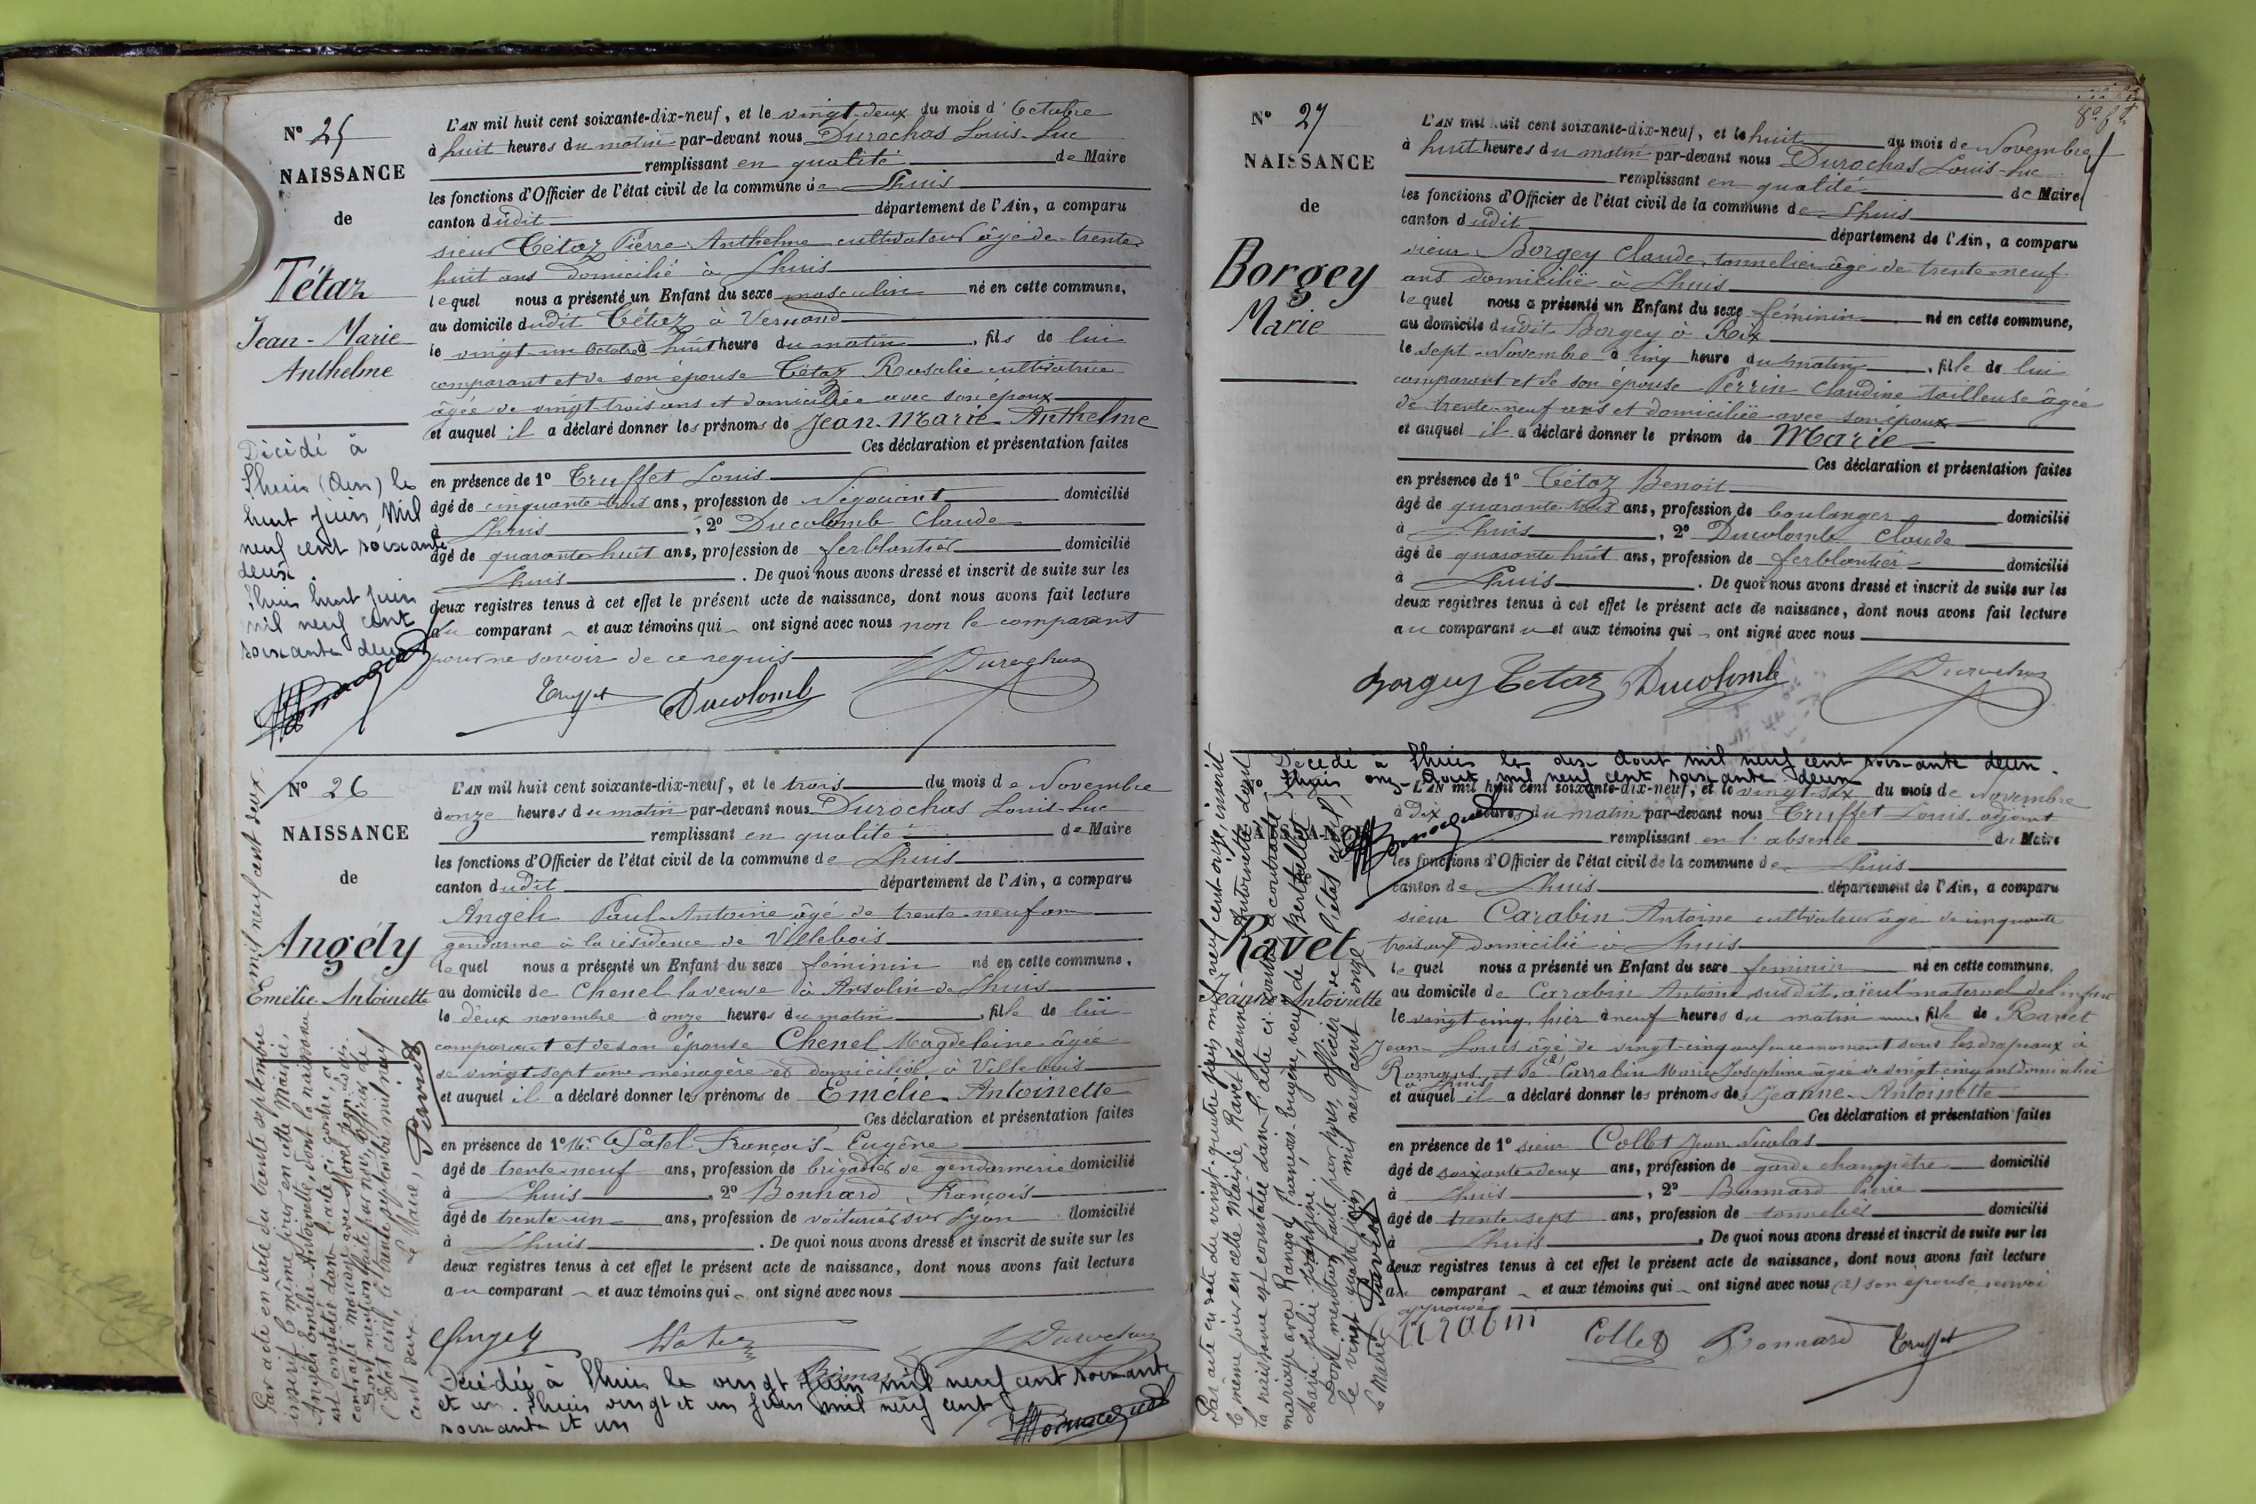 N° 25
NAISSANCE
de
Tétaz
Jean-Marie
Anthelme
Décédé à
Lhuis (Ain) le
huit juin mil
neuf cent soixante
deux.
Lhuis huit juin
mil neuf cent
soixante deux
L'AN mil huit cent soixante-dix-neuf, et le vingt-deux du mois d'Octobre
à huit heures du matin par-devant nous Durochas Louis-Luc
remplissant en qualité de Maire
les fonctions d'Officier de l'état civil de la commune de Lhuis
canton dudit département de l'Ain, a comparu
sieur Tétaz Pierre Anthelme cultivateur âgé de trente
huit ans domicilié à Lhuis
lequel nous a présenté un Enfant du sexe masculin né en cette commune,
au domicile dudit Tétaz à Vernand
le vingt-un Octobre à huit heure du matin, fils de lui
comparant et de son épouse Tétaz Rosalie cultivatrice
âgée de vingt-trois ans et domiciliée avec son époux
et auquel il a déclaré donner les prénoms de Jean-Marie Anthelme
Ces déclaration et présentation faites
en présence de 1° Truffet Louis
âgé de cinquante-trois ans, profession de Négociant domicilié
à Lhuis, 2° Ducolomb Claude
âgé de quarante huit ans, profession de ferblantier domicilié
Lhuis. De quoi nous avons dressé et inscrit de suite sur les
deux registres tenus à cet effet le présent acte de naissance, dont nous avons fait lecture
au comparant et aux témoins qui ont signé avec nous non le comparant
pour ne savoir de ce requis
Truffet Ducolomb Durochas
N° 26
NAISSANCE
de
Angély
Emélie Antoinette
L'AN mil huit cent soixante-dix-neuf, et le trois du mois de Novembre
à onze heures du matin par-devant nous Durochas Louis-Luc
remplissant en qualité de Maire
les fonctions d'Officier de l'état civil de la commune de Lhuis
canton dudit département de l'Ain, a comparu
Angély Paul-Antoine âgé de trente-neuf ans
gendarme à la résidence de Villebois
lequel nous a présenté un Enfant du sexe féminin né en cette commune,
au domicile de Chenel la veuve à Ansolin de Lhuis
le deux novembre à onze heures du matin, fille de lui
comparant et de son épouse Chenel Magdeleine âgée
de vingt-sept ans ménagère et domiciliée à Villebois
et auquel il a déclaré donner les prénoms de Emélie Antoinette
Ces déclaration et présentation faites
en présence de 1° Mr François-Eugène
âgé de trente-neuf ans, profession de brigadier de gendarmerie domicilié
à Lhuis, 2° Bonnard François
âgé de trente-un ans, profession de voiturier sur Lyon domicilié
à Lhuis. De quoi nous avons dressé et inscrit de suite sur les
deux registres tenus à cet effet le présent acte de naissance, dont nous avons fait lecture
au comparant et aux témoins qui ont signé avec nous
Angély Durochas
Décédée à Lhuis le vingt juin mil neuf cent soixante
et un. Lhuis vingt et un juin mil neuf cent
soixante et un
Par acte en date du trente septembre mil neuf cent deux,
inscrit le même jour en cette Mairie,
Angély Emélie-Antoinette, dont la naissance
est constatée dans l'acte ci-contre, a
contracté mariage avec Morel
Dont mention faite par nous, officier de
l'Etat civil, le trente septembre mil neuf
cent deux. Le Maire,
N° 27
NAISSANCE
de
Borgey
Marie
L'AN mil huit cent soixante-dix-neuf, et le huit du mois de Novembre
à huit heures du matin par-devant nous Durochas Louis-Luc
remplissant en qualité de Maire
les fonctions d'Officier de l'état civil de la commune de Lhuis
canton dudit département de l'Ain, a comparu
sieur Borgey Claude, tonnelier âgé de trente-neuf
ans domicilié à Lhuis
lequel nous a présenté un Enfant du sexe féminin né en cette commune,
au domicile dudit Borgey à Rix
le sept Novembre à cinq heure du matin, fille de lui
comparant et de son épouse Perrin Claudine tailleuse âgée
de trente-neuf ans et domiciliée avec son époux
et auquel il a déclaré donner le prénom de Marie
Ces déclaration et présentation faites
en présence de 1° Tétaz Benoit
âgé de quarante ans, profession de boulanger domicilié
à Lhuis, 2° Ducolomb Claude
âgé de quarante huit ans, profession de ferblantier domicilié
à Lhuis. De quoi nous avons dressé et inscrit de suite sur les
deux registres tenus à cet effet le présent acte de naissance, dont nous avons fait lecture
au comparant et aux témoins qui ont signé avec nous
Borgey Tétaz Ducolomb Durochas
Décédé à Lhuis le dix Août mil neuf cent soixante deux.
Lhuis onze Août mil neuf cent soixante deux
NAISSANCE
Ravet
Jeanne Antoinette
L'AN mil huit cent soixante-dix-neuf, et le vingt-six du mois de Novembre
à dix heures du matin par-devant nous Truffet Louis adjoint
remplissant en l'absence du Maire
les fonctions d'Officier de l'état civil de la commune de Lhuis
canton de Lhuis département de l'Ain, a comparu
sieur Carabin Antoine cultivateur âgé de cinquante
trois ans domicilié à Lhuis
lequel nous a présenté un Enfant du sexe féminin né en cette commune,
au domicile de Carabin Antoine susdit, aïeul maternel de l'enfant
le vingt-cinq hier à neuf heures du matin, fille de Ravet
Jean-Louis âgé de vingt-cinq ans en ce moment sous les drapeaux à
Romans, et de (2) Carrabin Marie Joséphine âgée de vingt cinq ans domiciliée
à Lhuis
et auquel il a déclaré donner les prénoms de Jeanne-Antoinette
Ces déclaration et présentation faites
en présence de 1° sieur Collet Jean Nicolas
âgé de soixante-deux ans, profession de garde champêtre domicilié
à Lhuis, 2° Bonnard Pierre
âgé de trente-sept ans, profession de tonnelier domicilié
à Lhuis. De quoi nous avons dressé et inscrit de suite sur les
deux registres tenus à cet effet le présent acte de naissance, dont nous avons fait lecture
au comparant et aux témoins qui ont signé avec nous (2) son épouse renvoi
approuvé
Carabin Collet Bonnard Truffet
Par acte en date du vingt-quatre juin mil neuf cent onze, inscrit
le même jour en cette Mairie, Ravet Jeanne-Antoinette dont
la naissance est constatée dans l'acte ci-contre, a contracté
mariage avec Rangod François-Eugène, veuf de Berthollet
Marie Julie Joséphine.
Dont mention faite par nous, officier de l'état civil,
le vingt quatre juin mil neuf cent onze
Le Maire,